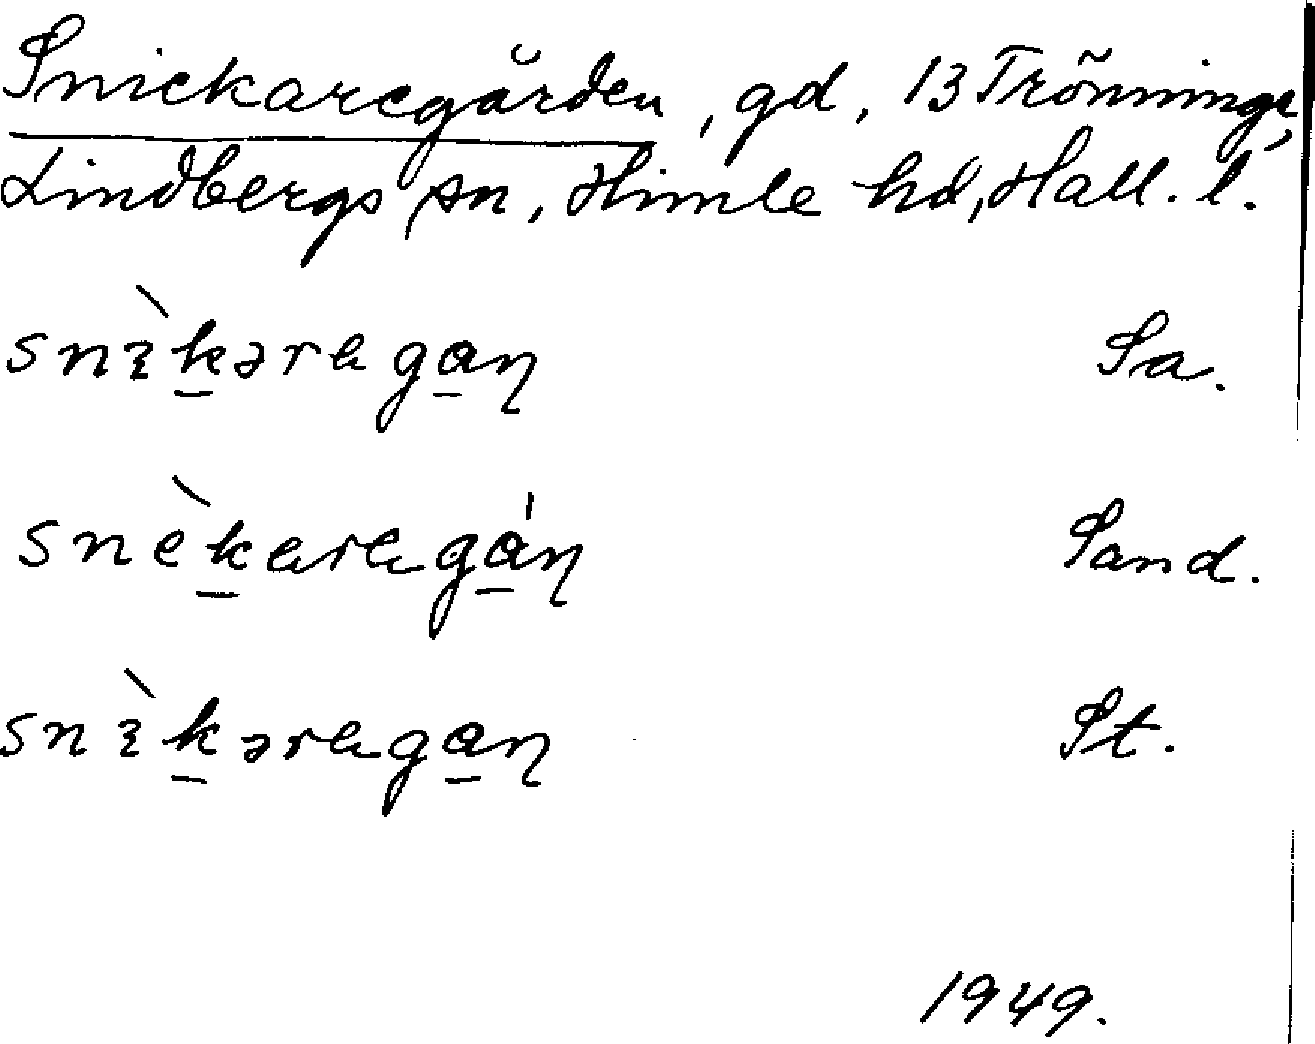 Snickaregården, gd, 13 Trönninge,
Lindbergs sn, Himle hd, Hall. l.
snìkəragan Sa.
snèkaragán Sand.
snìkəragan St.
1949.